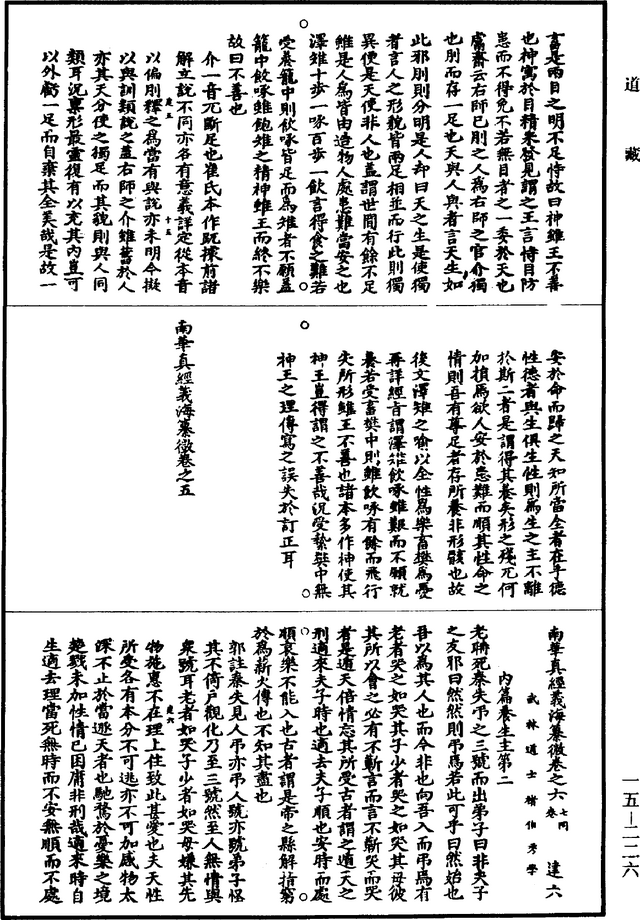 道藏
畜是兩目之明不足恃故曰神雖王不善
也神寓於目精采發見謂之王言恃目防
患而不得免不若無目者之一委於天也
鬳齋云右師已刖之人為右師之官介獨
也刖而存一足也天與人與者言天生如
此邪刖則分明是人却曰天之生是使獨
者言人之形貌皆兩足相並而行此則獨
異便是天使非人也蓋謂世間有餘不足
雖是人為皆由造物人處患難當安之也
澤雉十步一啄百步一飲言得食之難若
受養籠中則飲啄皆足而為雉者不願蓋
籠中飲啄雖飽雉之精神雖王而終不樂
故曰不善也
介一音兀斷足也崔氏本作䟦據前諸
解立說不同亦各有意義詳定從本音
以偏刖釋之為當有與說亦未明今擬
以與訓類說之蓋右師之介雖舊於人
亦其天分使之獨足而其貌則與人同
類耳況稟形最靈復有以充其內豈可
以外虧一足而自棄其全美哉是故一
安於命而歸之天知所當全者在乎德
性德者與生俱生性則為生之主不離
於斯二者是謂得其養矣形之殘兀何
加損焉欲人安於患難而順其性命之
情則吾有尊足者存所養非形骸也故
後文澤雉之喻以全性為樂畜樊為憂
再詳經旨謂澤雉飲啄雖艱而不願就
養若受畜樊中則雖飲啄有餘而飛行
失所形雖王不善也諸本多作神使其
神王豈得謂之不善哉況受縶樊中無
神王之理傳寫之誤失於訂正耳
南華真經義海纂微卷之五
南華真經義海纂微卷之六 七同卷 達六
武林道士褚伯秀學
內篇養生主第二
老聃死秦失弔之三號而出弟子曰非夫子
之友邪曰然然則弔焉若此可乎曰然始也
吾以為其人也而今非也向吾入而弔焉有
老者哭之如哭其子少者哭之如哭其母彼
其所以會之必有不蘄言而言不蘄哭而哭
者是遁天倍情忘其所受古者謂之遁天之
刑適來夫子時也適去夫子順也安時而處
順哀樂不能入也古者謂是帝之縣解指窮
於為薪火傳也不知其盡也
郭註秦失見人弔亦弔人號亦號弟子怪
其不倚戶觀化乃至三號然至人無情與
眾號耳老者如哭子少者如哭母嫌其先
物施惠不在理上住致此甚愛也夫天性
所受各有本分不可逃亦不可加感物太
深不止於當遁天者也馳騖於憂樂之境
楚戮未加性情已困庸非刑哉適來時自
生適去理當死無時而不安無順而不處
一五—二二六